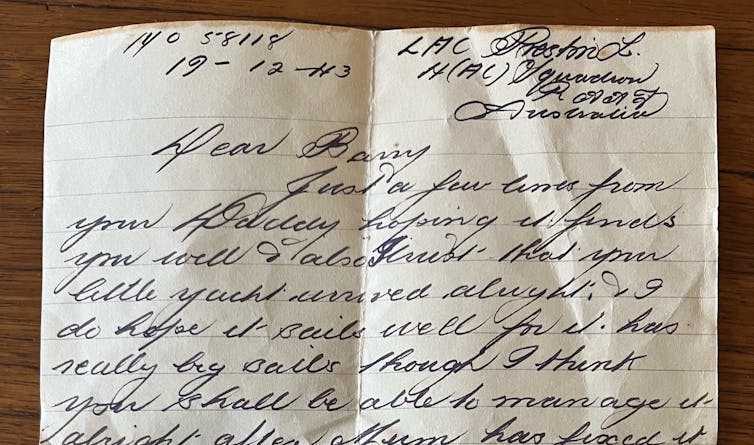 140 58118
19-12-43
LAC Preston L.
4(AC) Squadron
R.A.A.F
Australia
Dear Barry
Just a few lines from
your Daddy hoping it finds
you well & also I trust that your
little yacht arrived alright, & I
do hope it sails well for it has
really big sails though I think
you shall be able to manage it
alright after Mum has fixed it